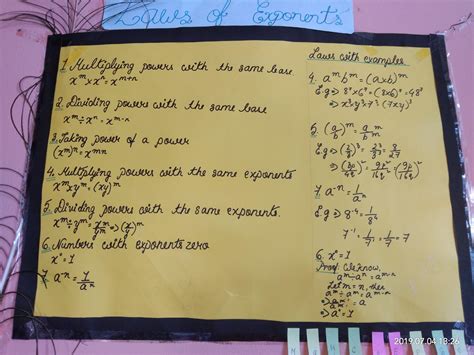 Laws of Exponents
1. Multiplying powers with the same base
xᵐ × xⁿ = xᵐ⁺ⁿ
2. Dividing powers with the same base
xᵐ ÷ xⁿ = xᵐ⁻ⁿ
3. Taking power of a power
(xᵐ)ⁿ = xᵐⁿ
4. Multiplying powers with the same exponents
xᵐ × yᵐ = (xy)ᵐ
5. Dividing powers with the same exponents.
xᵐ ÷ yᵐ = xᵐ/yᵐ ⇒ (x/y)ᵐ
6. Numbers with exponents zero
x° = 1
7. a⁻ⁿ = 1/aⁿ
Laws with examples
4. aᵐbᵐ = (a×b)ᵐ
E.g ⇒ 8⁶ × 6⁶ = (8×6)⁶ = 48⁶
5. (a/b)ᵐ = aᵐ/bᵐ
E.g ⇒ (2/3)³ = 2³/3³ = 8/27
7. a⁻ⁿ = 1/aⁿ
E.g ⇒ 8⁻⁴ = 1/8⁴
6. x° = 1
Proof: We know,
aᵐ ÷ aⁿ = aᵐ⁻ⁿ
Let m = n, then
aᵐ ÷ aᵐ = aᵐ⁻ᵐ
⇒ a° = 1
2019.07.04 13:26